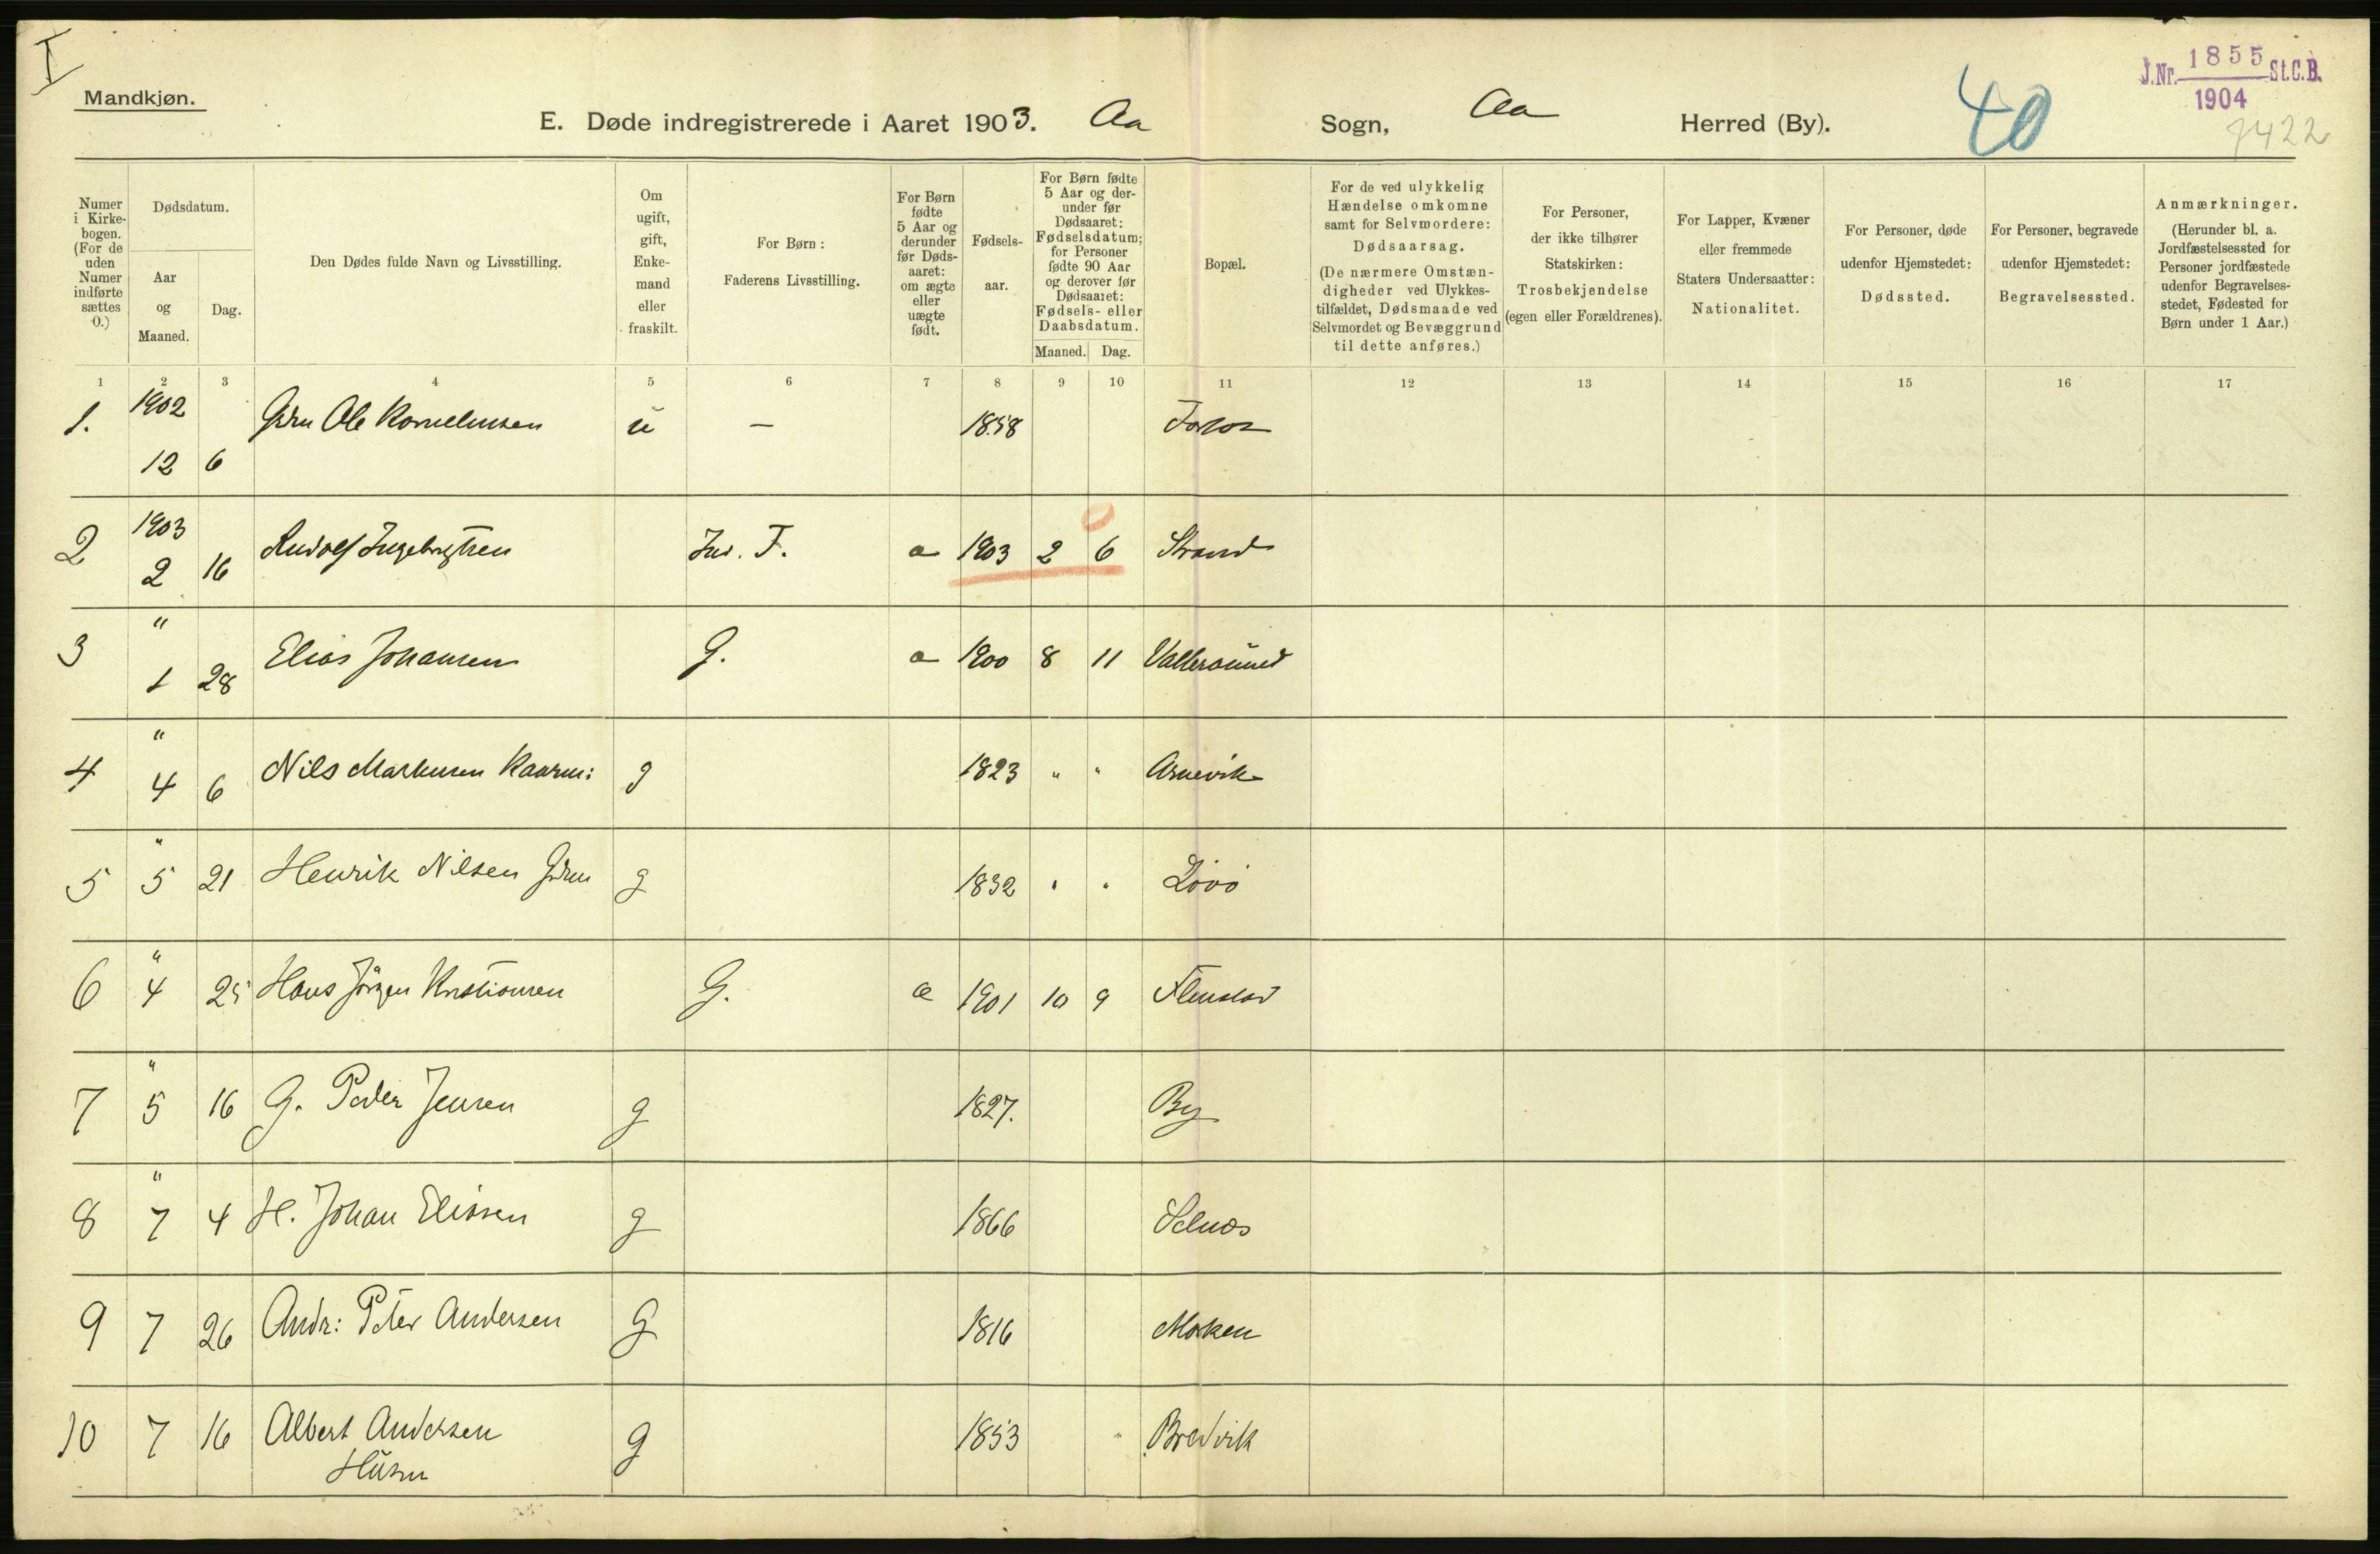 I
Mandkjøn.
J.Nr. 1855 St.C.B.
1904
7422
40
E. Døde indregistrerede i Aaret 1903. Aa Sogn, Aa Herred (By).
Numer i Kirkebogen. (For de uden Numer indførte sættes 0.)
Dødsdatum.
Aar og Maaned.
Dag.
Den Dødes fulde Navn og Livsstilling.
Om ugift, gift, Enkemand eller fraskilt.
For Børn: Faderens Livsstilling.
For Børn fødte 5 Aar og derunder før Dødsaaret: om ægte eller uægte født.
Fødselsaar.
For Børn fødte 5 Aar og derunder før Dødsaaret: Fødselsdatum; for Personer fødte 90 Aar og derover før Dødsaaret: Fødsels- eller Daabsdatum.
Maaned. Dag.
Bopæl.
For de ved ulykkelig Hændelse omkomne samt for Selvmordere: Dødsaarsag. (De nærmere Omstændigheder ved Ulykkestilfældet, Dødsmaade ved Selvmordet og Bevæggrund til dette anføres.)
For Personer, der ikke tilhører Statskirken: Trosbekjendelse (egen eller Forældrenes).
For Lapper, Kvæner eller fremmede Staters Undersaatter: Nationalitet.
For Personer, døde udenfor Hjemstedet: Dødssted.
For Personer, begravede udenfor Hjemstedet: Begravelsessted.
Anmærkninger. (Herunder bl. a. Jordfæstelsessted for Personer jordfæstede udenfor Begravelsesstedet, Fødested for Børn under 1 Aar.)
1 2 3 4 5 6 7 8 9 10 11 12 13 14 15 16 17
1. 1902 12 6 Gdrn Ole Korneliussen u — 1858
2 1903 2 16 Rudolf Ingebrigtsen Ind. F. æ 1903 2 6 Strand
3 " 1 28 Elias Johansen G. æ 1900 8 11 Vallersund
4 " 4 6 Nils Markusen Kaarm: g 1823 " " Arnevik
5 " 5 21 Henrik Nilsen Gdrn g 1832 " " Lövö
6 " 4 25 Hans Jörgen Kristiansen G. æ 1901 10 9
7 " 5 16 G. Peder Jensen g 1827. By
8 " 7 4 H. Johan Eliasen g 1866 Selnæs
9 7 26 Andr: Peter Andersen G 1816 Moken
10 7 16 Albert Andersen g 1853 Bredvik
Husm